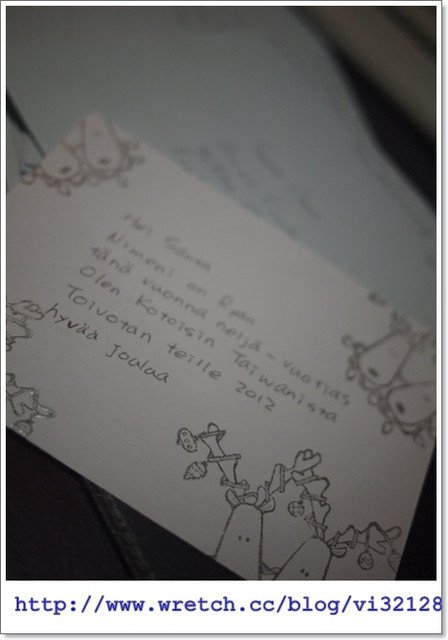 Hei Santa
Nimeni on Ryan
tänä vuonna neljä-vuotias
Olen Kotoisin Taiwanista
Toivotan teille 2012
hyvää Joulua
http://www.wretch.cc/blog/vi32128